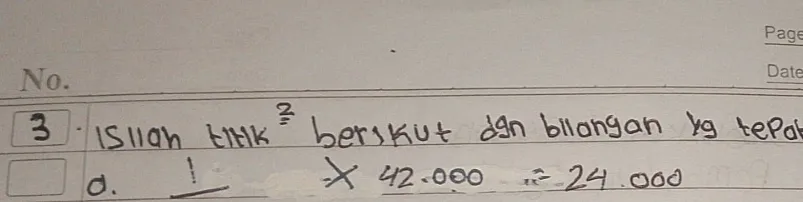 Page
No.
Date
3. isilah titik² berikut dgn bilangan yg tepat
a. 1 X 42.000 = 24.000